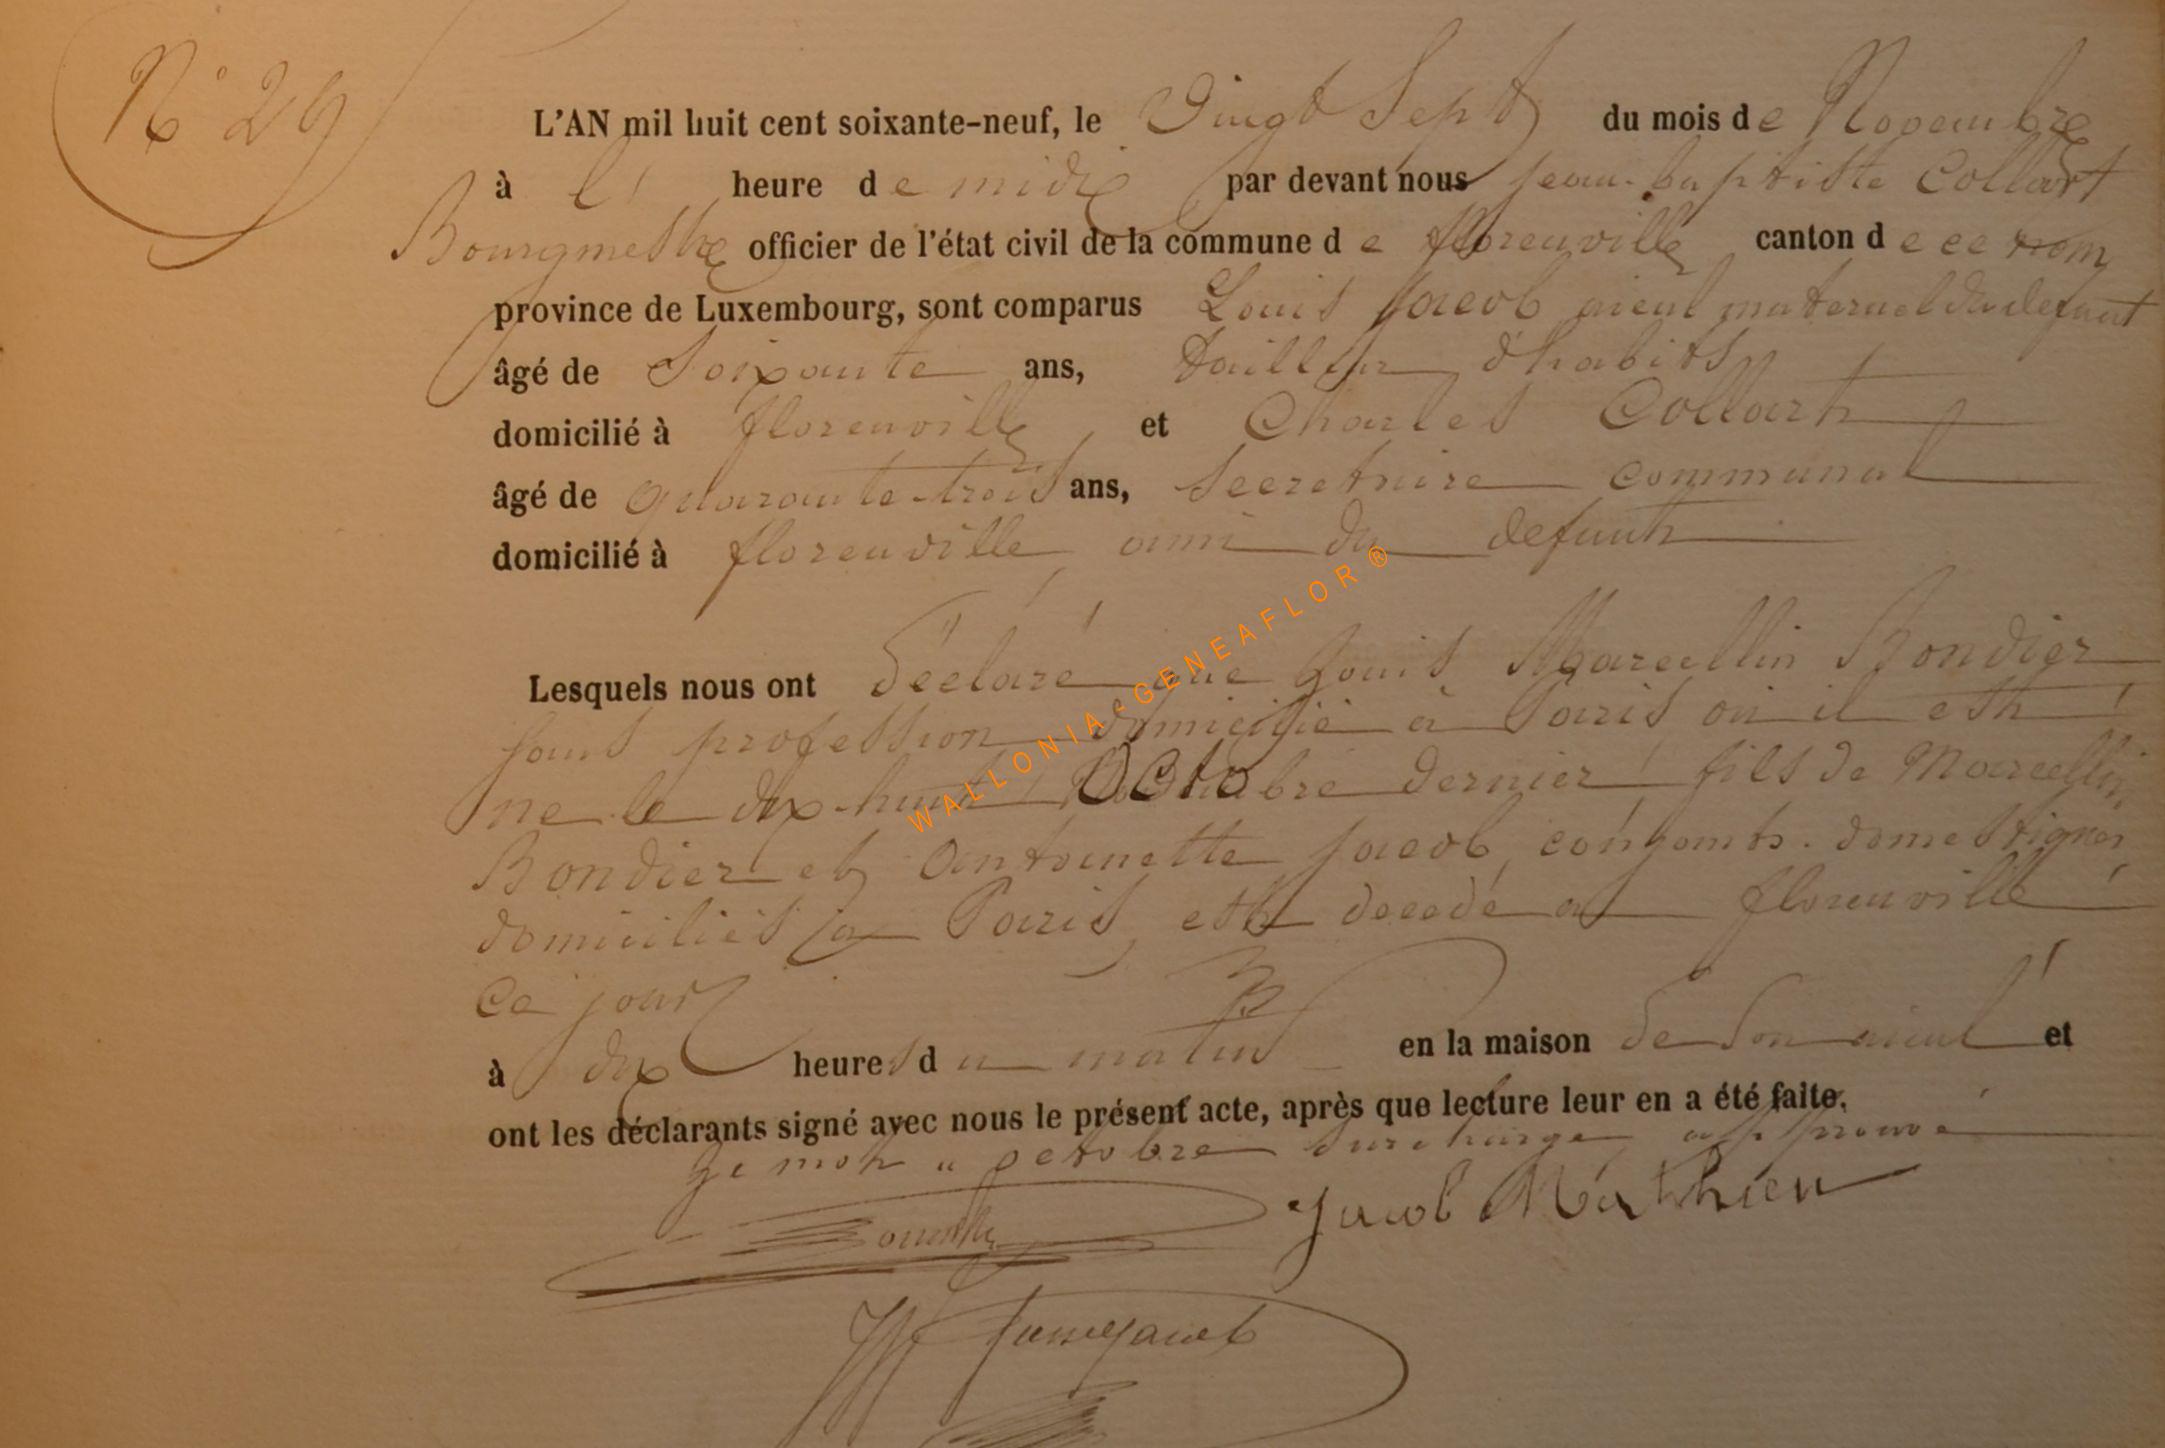 N° 29
L'AN mil huit cent soixante-neuf, le Vingt Sept du mois de Novembre
à l' heure de midi par devant nous jean-baptiste Collart
Bourgmestre officier de l'état civil de la commune de florenville canton de ce nom
province de Luxembourg, sont comparus Louis Jacob aieul maternel du defunt
âgé de Soixante ans, tailleur d'habits
domicilié à florenville et Charles Collart
âgé de quarante-trois ans, Secretaire communal
domicilié à florenville ami du defunt
Lesquels nous ont déclaré que Louis Marcellin Bondier
sans profession domicilié à Paris où il est
né le dix-huit Octobre dernier fils de Marcellin
Bondier et Antoinette Jacob, conjoints domestiques
domiciliés à Paris, est decedé à florenville
Ce jour
à dix heures du matin en la maison de Son aieul et
ont les déclarants signé avec nous le présent acte, après que lecture leur en a été faite.
Le mot " octobre surchargé approuvé
Jacob Mathieu
WALLONIA-GENEAFLOR ®